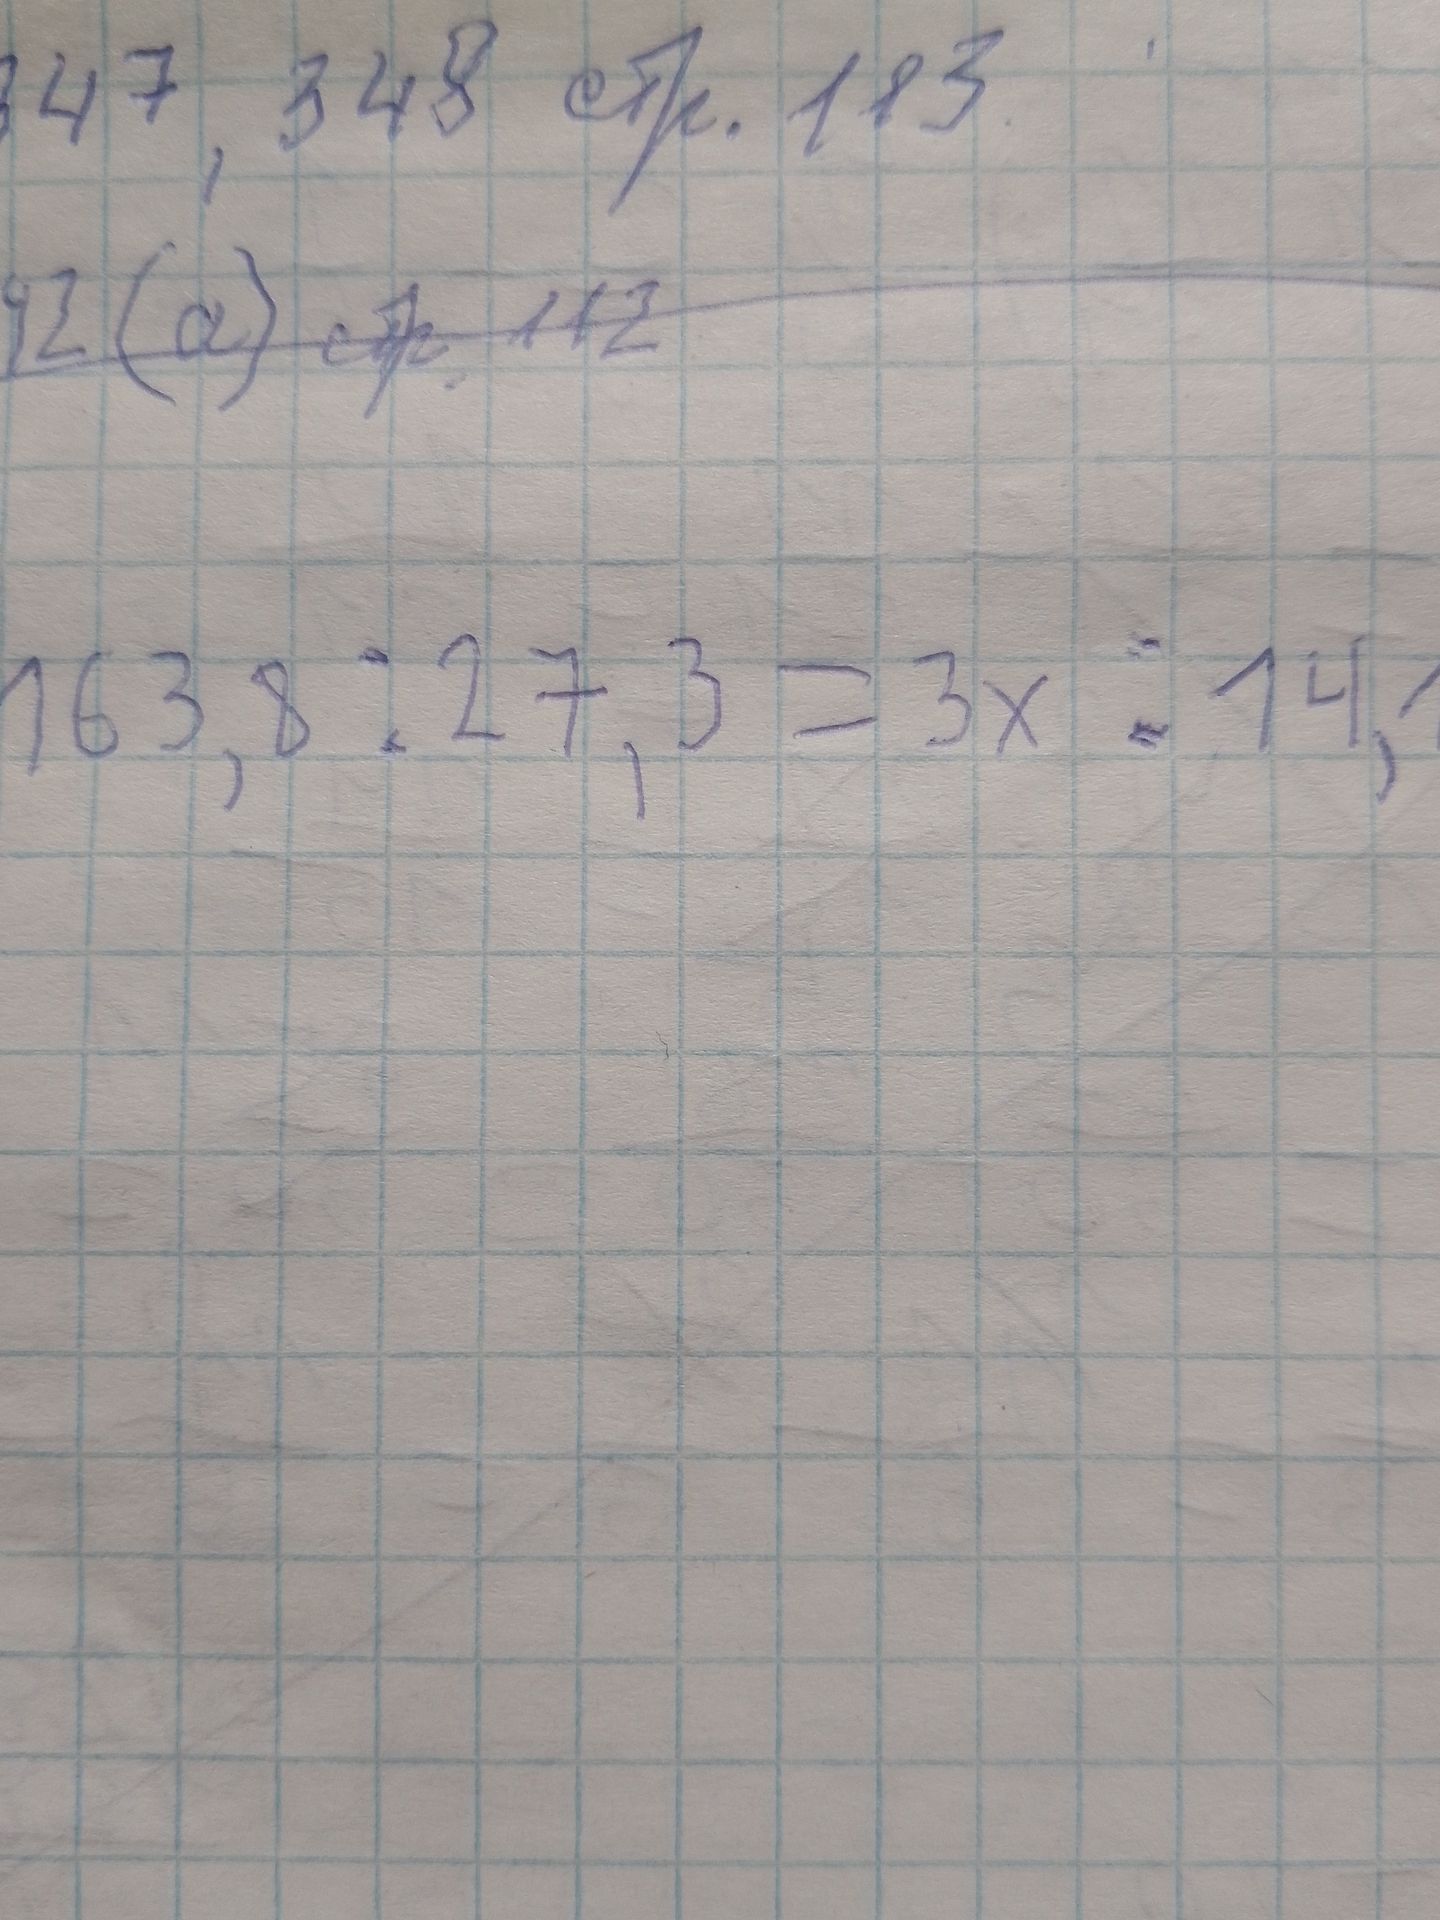 347, 348 стр. 113.
42(а) стр. 112
163,8 : 27,3 = 3x : 14,1